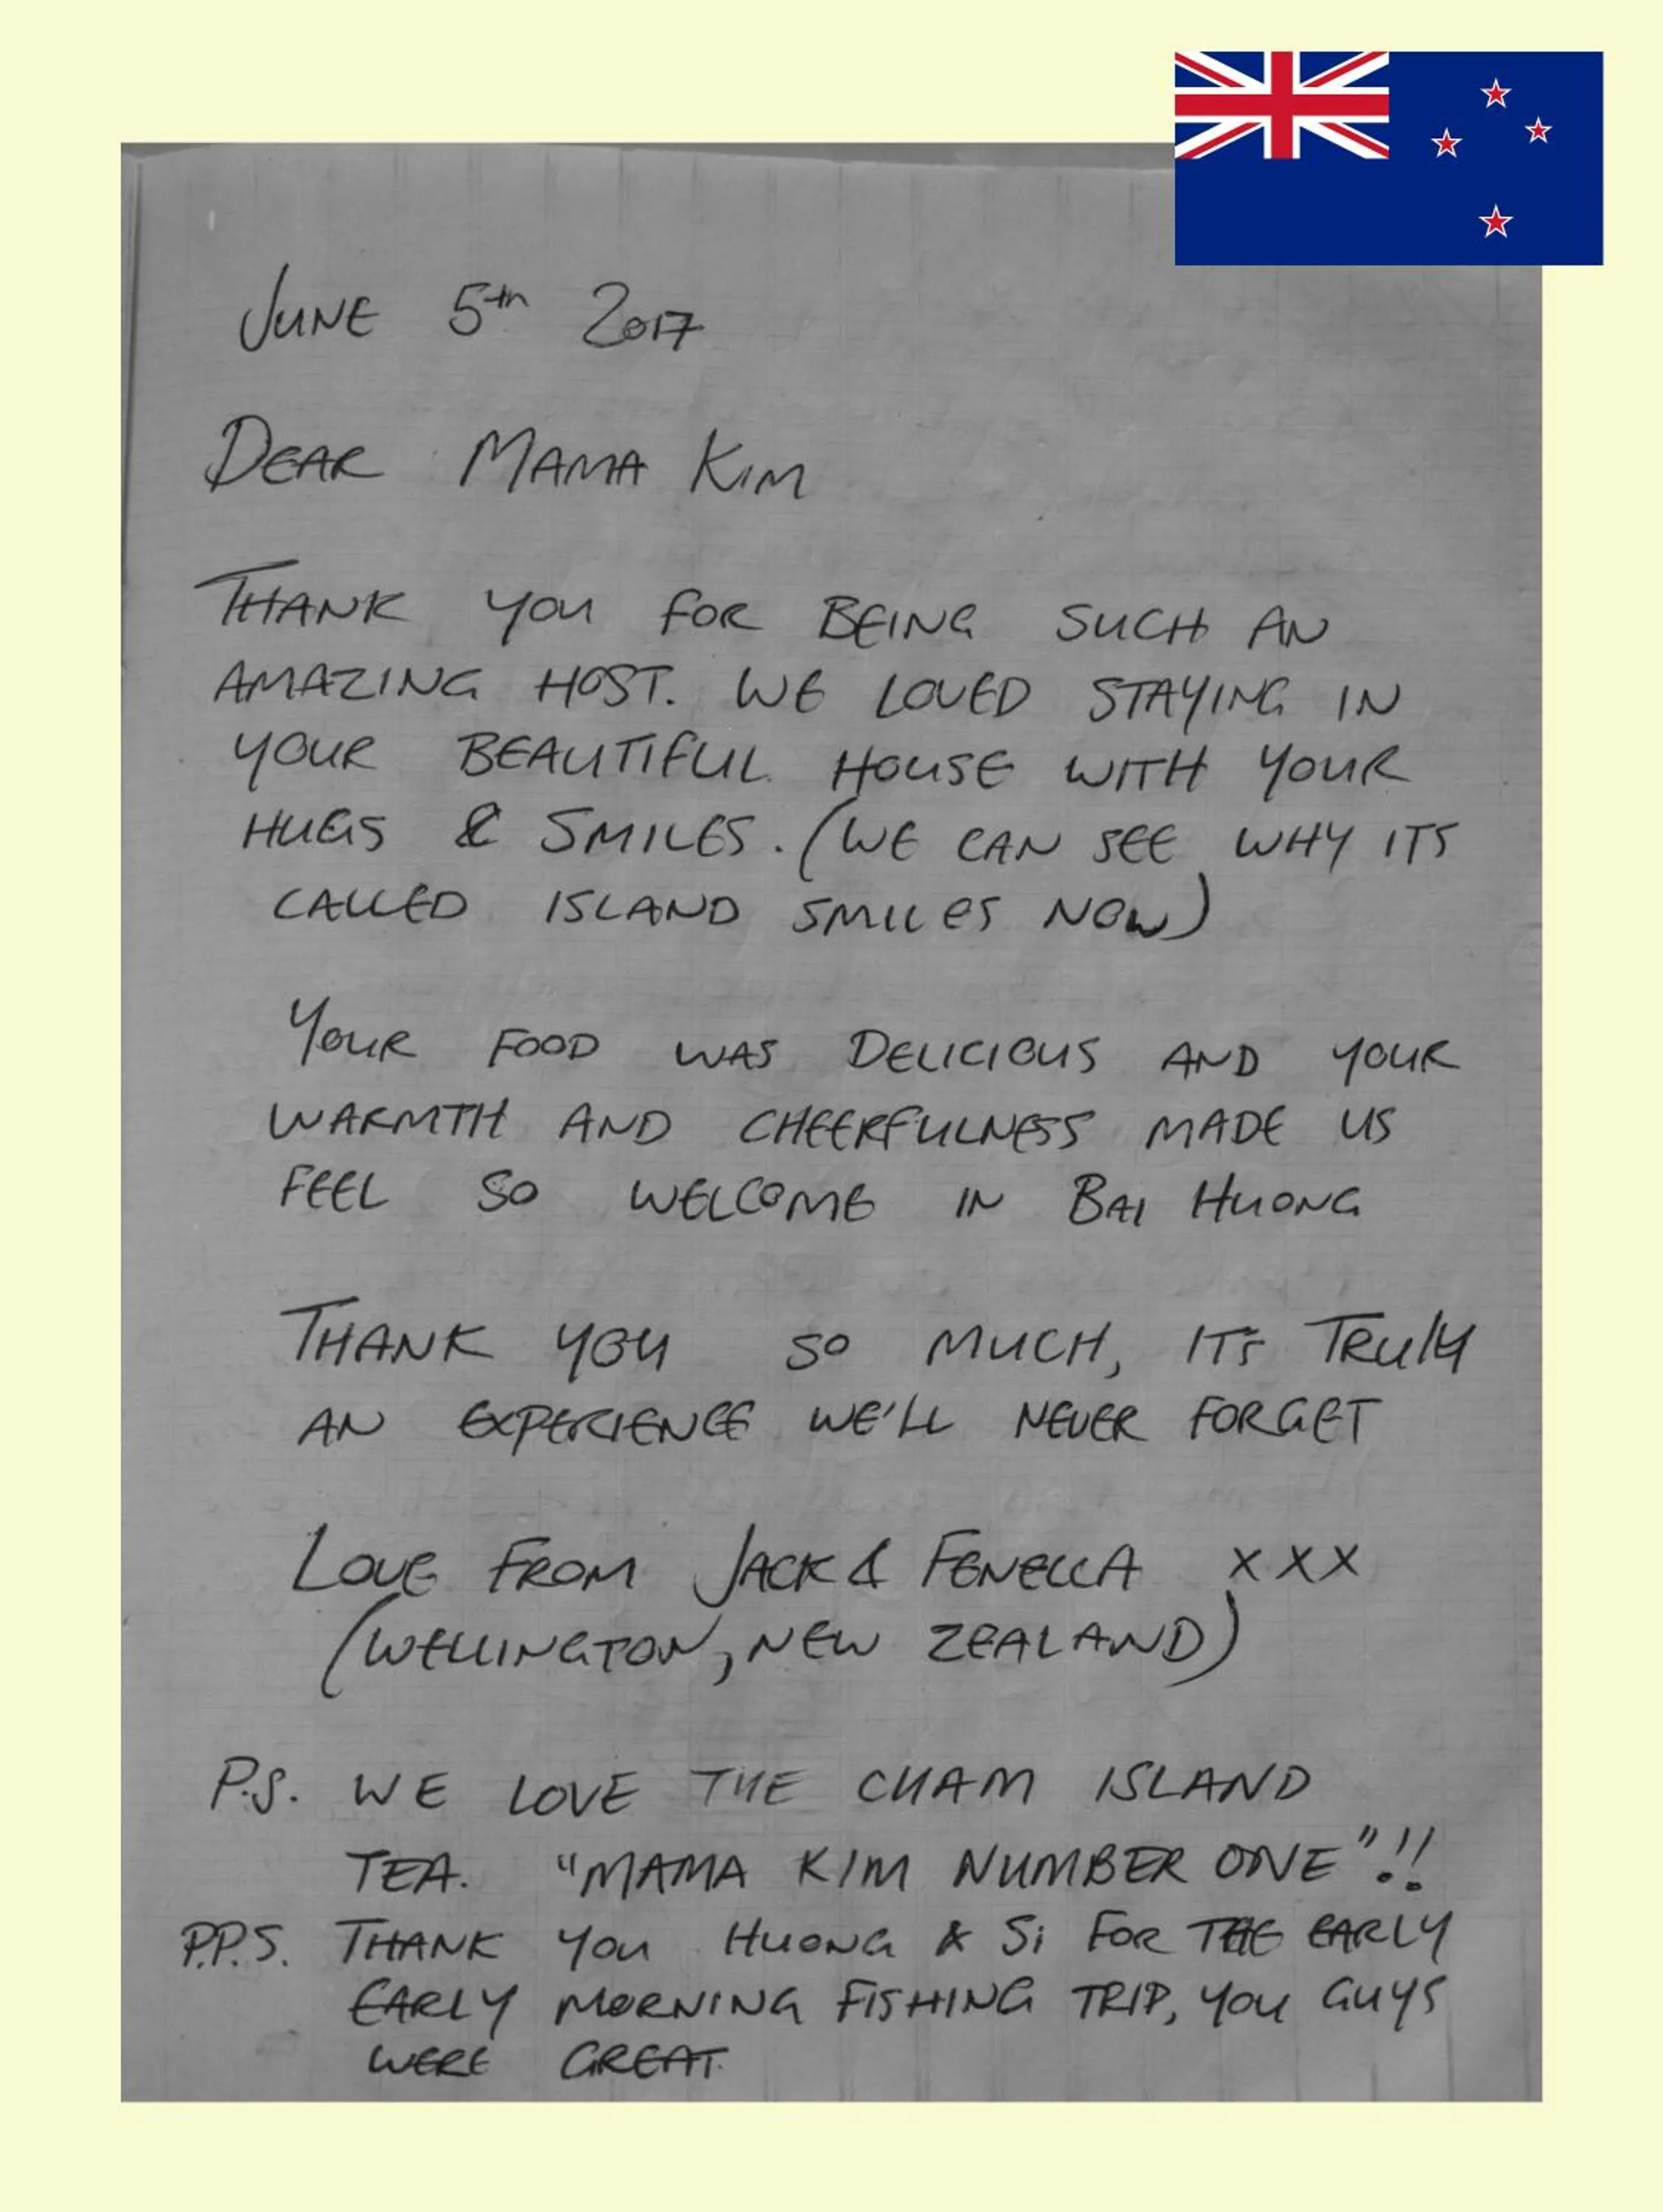 JUNE 5th 2017
DEAR MAMA KIM
THANK YOU FOR BEING SUCH AN
AMAZING HOST. WE LOVED STAYING IN
YOUR BEAUTIFUL HOUSE WITH YOUR
HUGS & SMILES. (WE CAN SEE WHY ITS
CALLED ISLAND SMILES NOW)
YOUR FOOD WAS DELICIOUS AND YOUR
WARMTH AND CHEERFULNESS MADE US
FEEL SO WELCOME IN BAI HUONG
THANK YOU SO MUCH, IT'S TRULY
AN EXPERIENCE WE'LL NEVER FORGET
LOVE FROM JACK & FENELLA XXX
(WELLINGTON, NEW ZEALAND)
P.S. WE LOVE THE CHAM ISLAND
TEA. "MAMA KIM NUMBER ONE"!!
P.P.S. THANK YOU HUONG & Si FOR THE EARLY
EARLY MORNING FISHING TRIP, YOU GUYS
WERE GREAT.